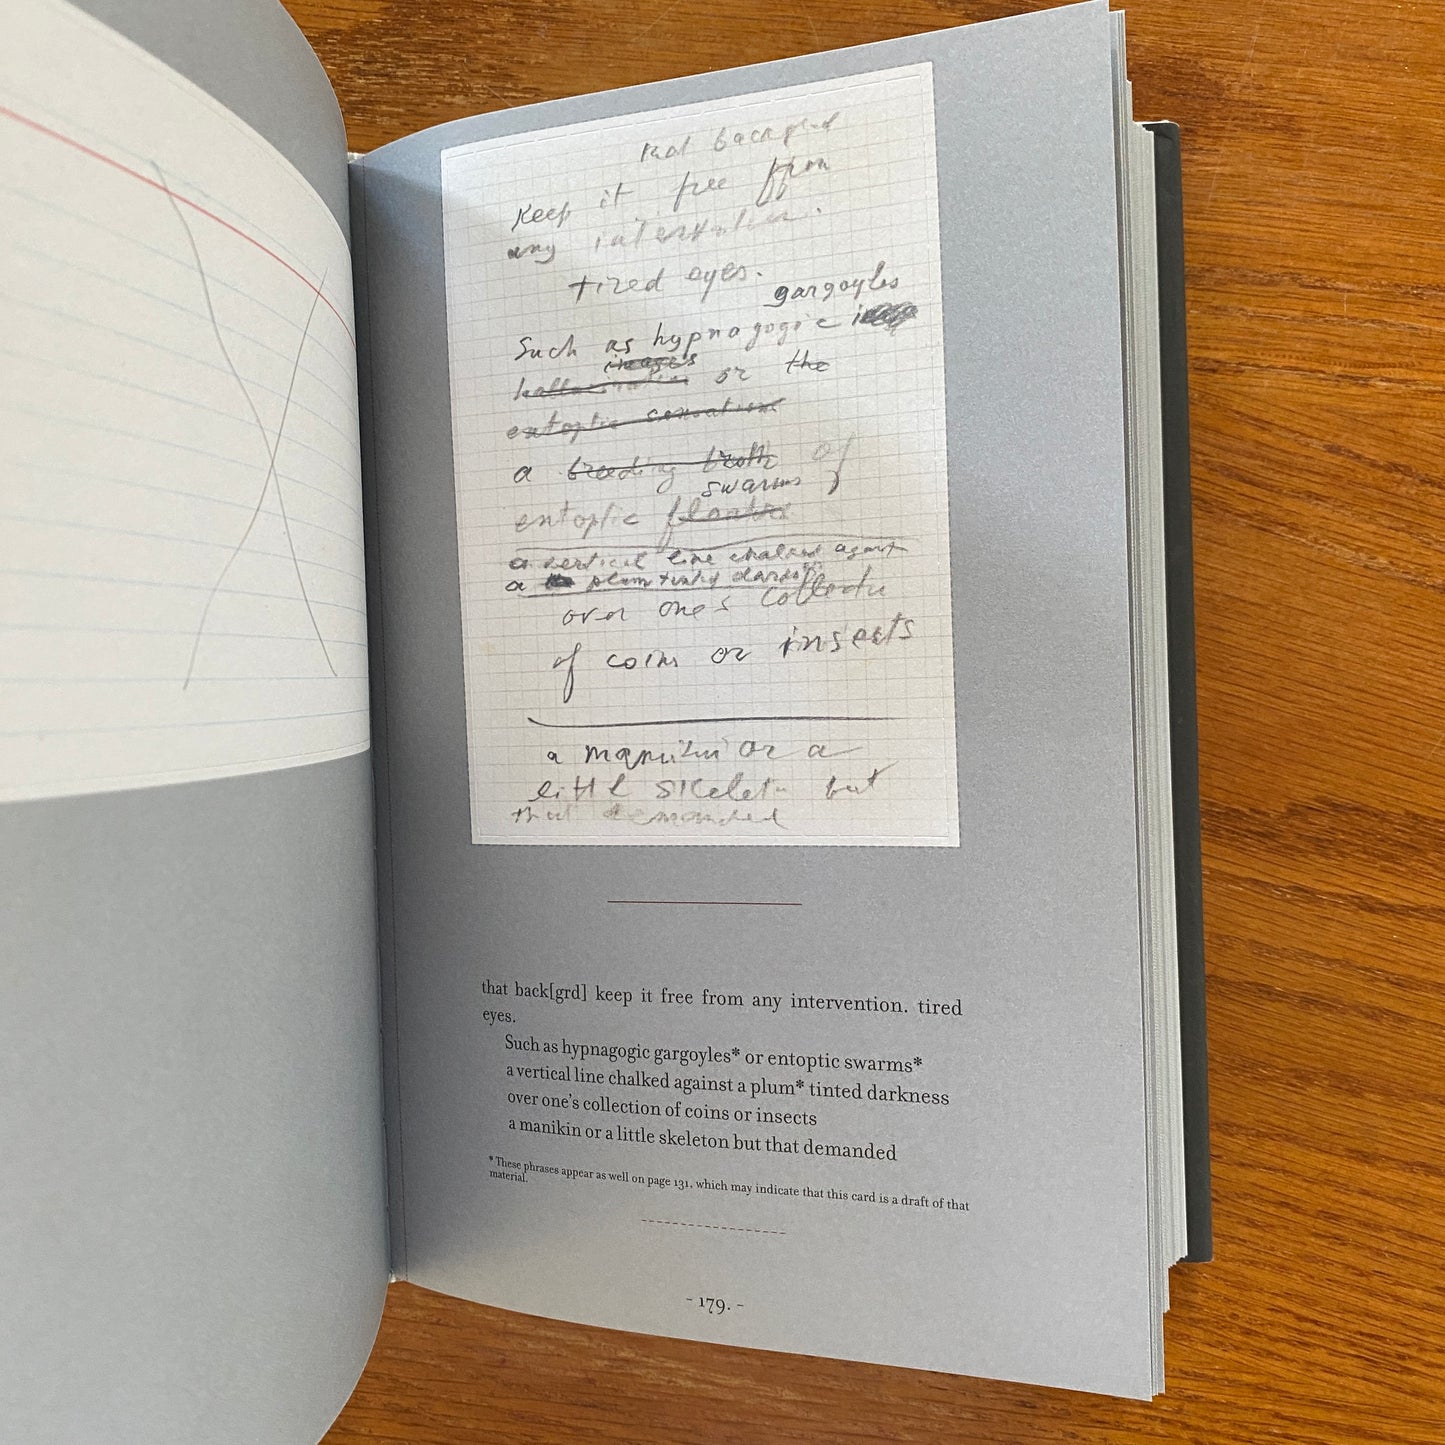 that backgrd
keep it free from
any intervention.
tired eyes.
gargoyles
Such as hypnagogic
images
hallucination or the
entoptic sensations
a breeding broth of
swarms
entoptic
a vertical line chalked against
a plum tinted darkness
over one's collection
of coins or insects
a manikin or a
little skeleton but
that demanded
that back[grd] keep it free from any intervention. tired
eyes.
Such as hypnagogic gargoyles* or entoptic swarms*
a vertical line chalked against a plum* tinted darkness
over one's collection of coins or insects
a manikin or a little skeleton but that demanded
* These phrases appear as well on page 131, which may indicate that this card is a draft of that
material.
- 179. -